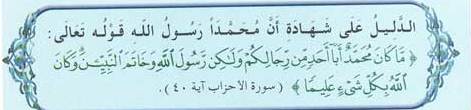 الدَّلِيلُ عَلَى شَهَادَةِ أَنَّ مُحَمَّدًا رَسُولُ اللهِ قَوْلُهُ تَعَالَى :
﴿ مَّا كَانَ مُحَمَّدٌ أَبَآ أَحَدٍ مِّن رِّجَالِكُمْ وَلَٰكِن رَّسُولَ ٱللَّهِ وَخَاتَمَ ٱلنَّبِيِّـۧنَ ۗ وَكَانَ
ٱللَّهُ بِكُلِّ شَىْءٍ عَلِيمًا ﴾ (سورة الاحزاب آية ٤٠) .